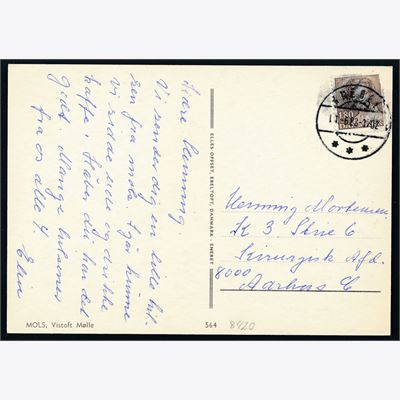 Kære Henning
Vi sender dig en lille hil-
sen fra mols. I går kunne
vi sidde ude og drikke
kaffe. Håber du har det
godt. Mange hilsener
fra os alle 4
Elin
MOLS, Vistoft Mølle
ELLES OFFSET, EBELTOFT, DANMARK - ENERET
564
8420
Henning Mortensen
K 3. Stue 6
Kirurgisk Afd.
8000
Aarhus C